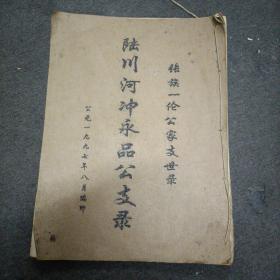 张族一伦公家支世录
陆川河冲永品公支录
公元一九九七年八月编印